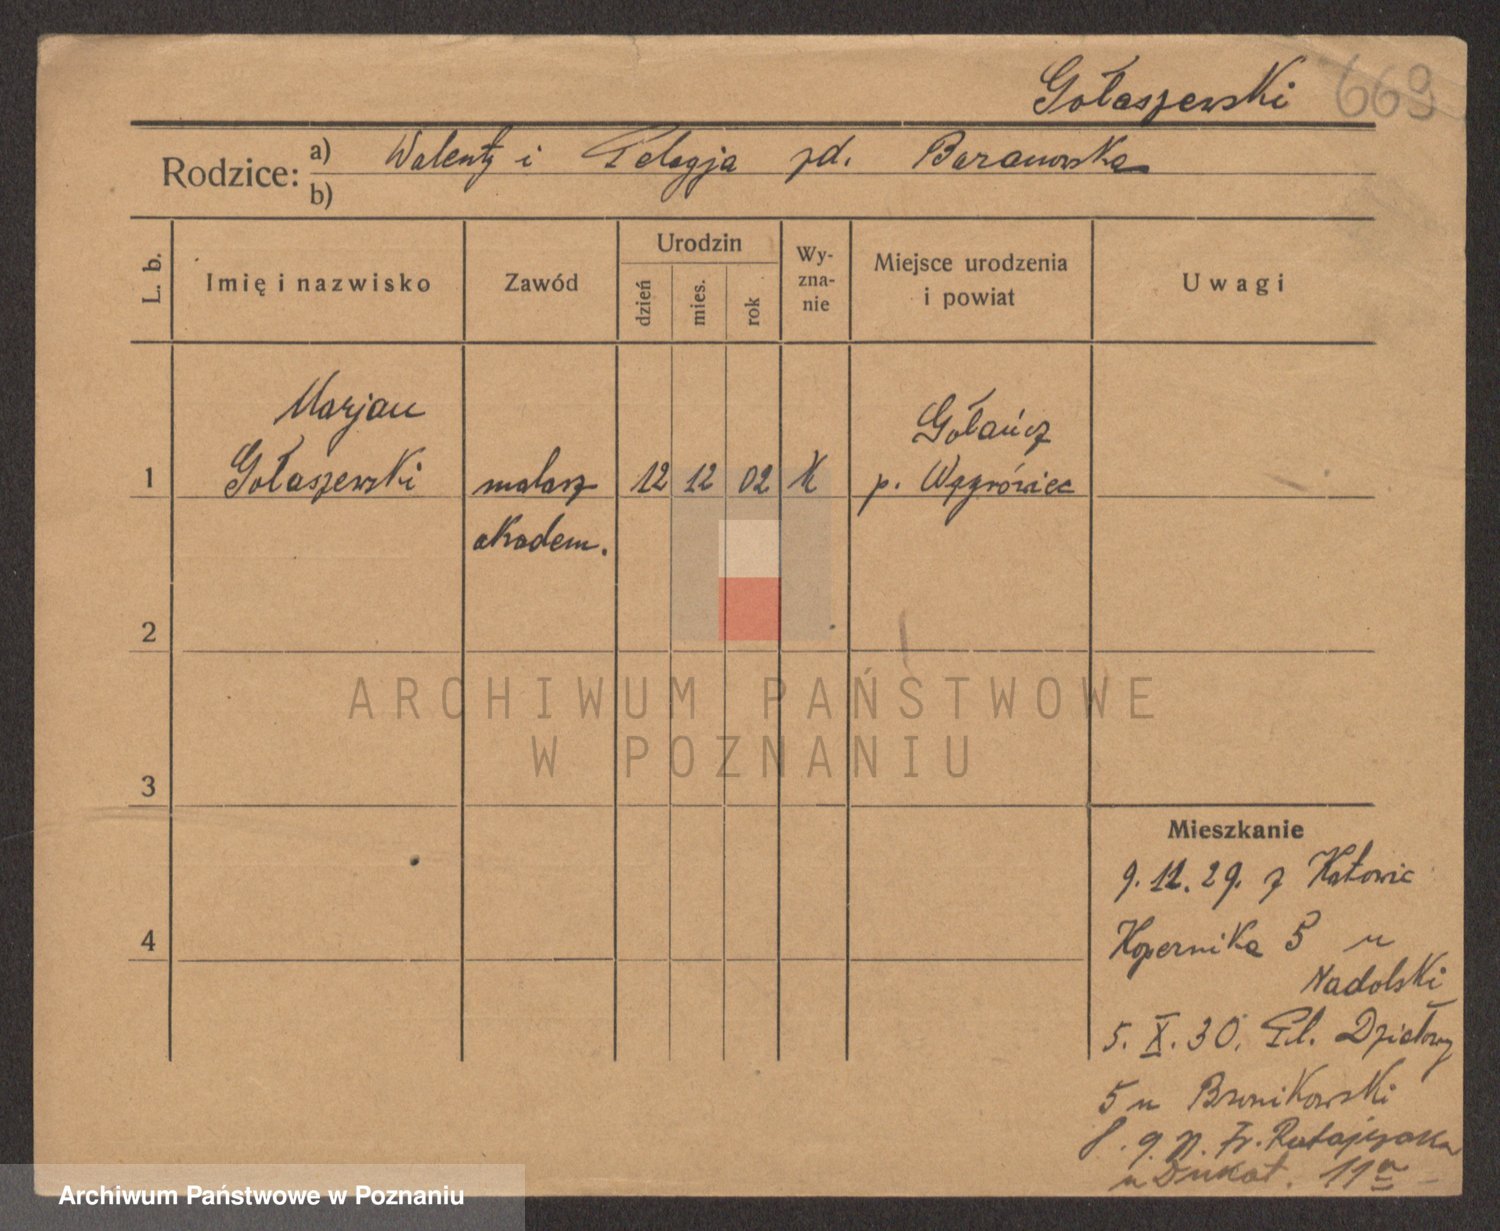 Gołaszewski 669
Rodzice: a) Walenty i Pelagja zd. Baranowska
b)
L. b.
Imię i nazwisko
Zawód
Urodzin
dzień
mies.
rok
Wy-
zna-
nie
Miejsce urodzenia
i powiat
Uwagi
Marjan
Gołaszewski
1
malarz
akadem.
12 12 02 K
Gołańcz
p. Wągrówiec
2
3
4
ARCHIWUM PAŃSTWOWE
W POZNANIU
Mieszkanie
9. 12. 29. z Katowic
Kopernika 5 u
Nadolski
5. X. 30. Pl. Działowy
5 u Bronikowski
Fr. Ratajczaka
u Dukat. 11a
Archiwum Państwowe w Poznaniu